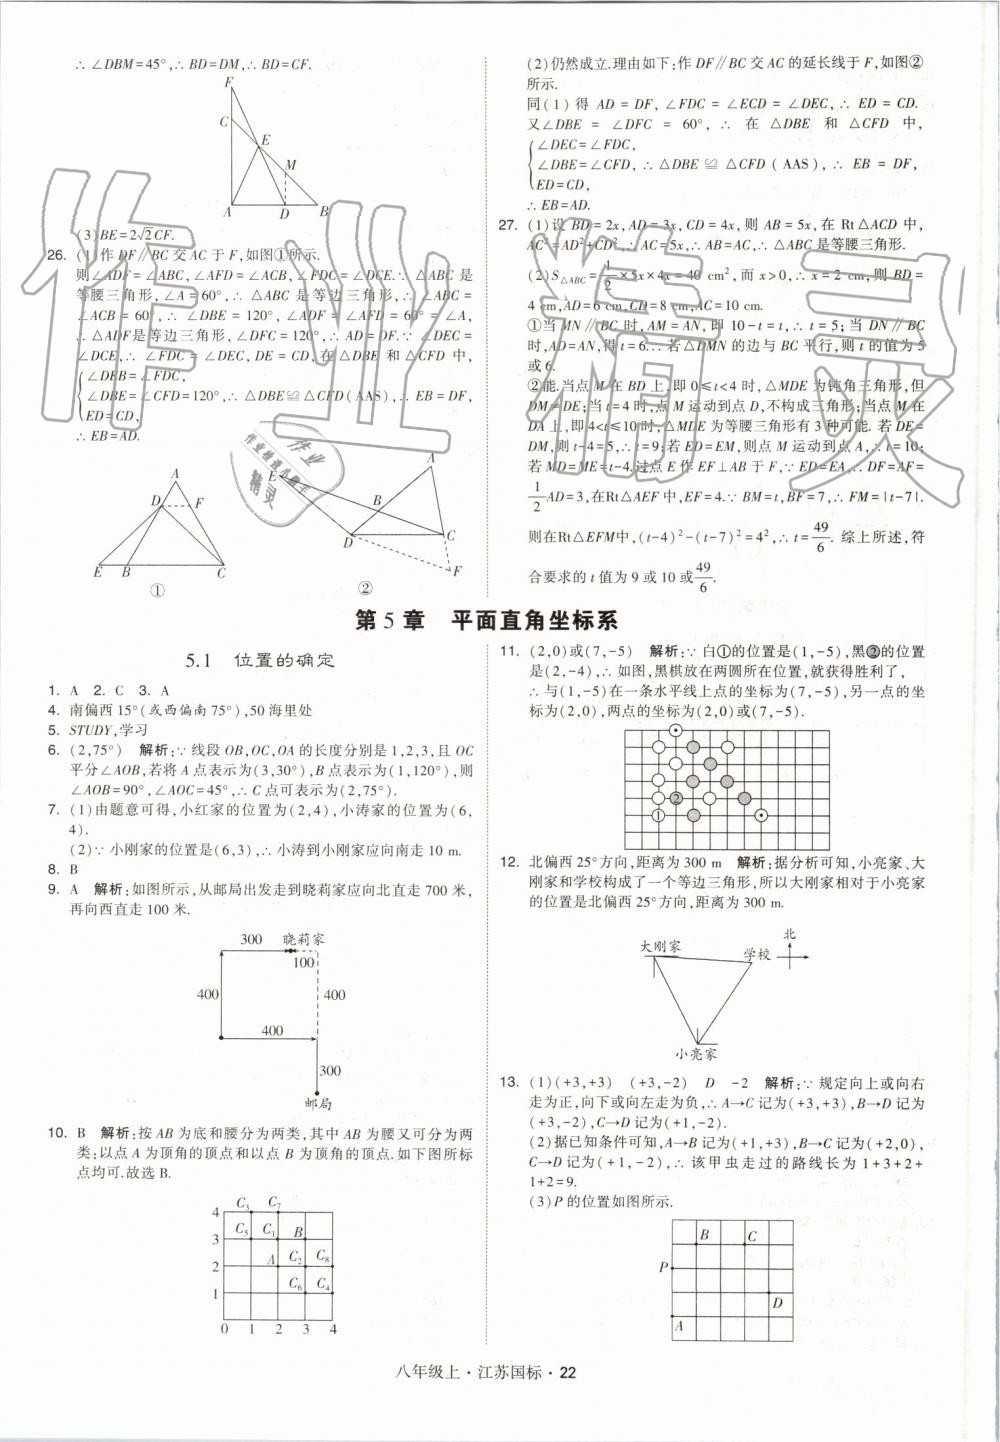 ∴ ∠DBM=45°,∴ BD=DM,∴ BD=CF.
F
C
E
M
A
D
B
(3)BE=2√2CF.
26. (1)作DF∥BC交AC于F,如图①所示.
则∠ADF=∠ABC,∠AFD=∠ACB,∠FDC=∠DCE.∵ △ABC是
等腰三角形,∠A=60°,∴ △ABC是等边三角形,∴ ∠ABC=
∠ACB=60°,∴ ∠DBE=120°,∠ADF=∠AFD=60°=∠A,
∴ △ADF是等边三角形,∠DFC=120°,∴ AD=DF.∵ ∠DEC=
∠DCE,∴ ∠FDC=∠DEC,DE=CD,在△DBE和△CFD中,
∠DEB=∠FDC,
∠DBE=∠CFD=120°,∴ △DBE≌△CFD(AAS),∴ EB=DF,
ED=CD,
∴ EB=AD.
A
D
F
E
B
C
①
A
E
B
D
C
F
②
(2)仍然成立.理由如下:作DF∥BC交AC的延长线于F,如图②
所示.
同(1)得AD=DF,∠FDC=∠ECD=∠DEC,∴ ED=CD.
又∠DBE=∠DFC=60°,∴ 在△DBE和△CFD中,
∠DEC=∠FDC,
∠DBE=∠CFD,∴ △DBE≌△CFD(AAS),∴ EB=DF,
ED=CD,
∴ EB=AD.
27. (1)设BD=2x,AD=3x,CD=4x,则AB=5x,在Rt△ACD中,
AC²=AD²+CD²,∴ AC=5x,∴ AB=AC,∴ △ABC是等腰三角形.
(2)S△ABC=1/2×5x×4x=40 cm²,而x>0,∴ x=2 cm,则BD=
4 cm,AD=6 cm,CD=8 cm,AC=10 cm.
①当MN∥BC时,AM=AN,即10-t=t,∴ t=5;当DN∥BC
时,AD=AN,得t=6.∴ 若△DMN的边与BC平行,则t的值为5
或6.
②能.当点M在BD上,即0≤t<4时,△MDE为钝角三角形,但
DM≠DE;当t=4时,点M运动到点D,不构成三角形;当点M在
DA上,即4<t≤10时,△MDE为等腰三角形有3种可能.若DE=
DM,则t-4=5,∴ t=9;若ED=EM,则点M运动到点A,∴ t=10;
若MD=ME=t-4,过点E作EF⊥AB于F,∵ ED=EA,∴ DF=AF=
1/2AD=3,在Rt△AEF中,EF=4.∵ BM=t,BF=7,∴ FM=|t-7|.
则在Rt△EFM中,(t-4)²-(t-7)²=4²,∴ t=49/6. 综上所述,符
合要求的t值为9或10或49/6.
第5章 平面直角坐标系
5.1 位置的确定
1. A 2. C 3. A
4. 南偏西15°(或西偏南75°),50海里处
5. STUDY,学习
6. (2,75°) 解析:∵ 线段OB,OC,OA的长度分别是1,2,3,且OC
平分∠AOB,若将A点表示为(3,30°),B点表示为(1,120°),则
∠AOB=90°,∠AOC=45°,∴ C点可表示为(2,75°).
7. (1)由题意可得,小红家的位置为(2,4),小涛家的位置为(6,
4).
(2)∵ 小刚家的位置是(6,3),∴ 小涛到小刚家应向南走10 m.
8. B
9. A 解析:如图所示,从邮局出发走到晓莉家应向北直走700米,
再向西直走100米.
300 晓莉家
100
400
400
400
300
邮局
10. B 解析:按AB为底和腰分为两类,其中AB为腰又可分为两
类:以点A为顶角的顶点和以点B为顶角的顶点.如下图所标
点均可.故选B.
C₃ C₇
4
C₅ C₁ B
3
A C₂ C₈
2
C₆ C₄
1
0 1 2 3 4
11. (2,0)或(7,-5) 解析:∵ 白①的位置是(1,-5),黑❷的位置
是(2,-4),∴ 如图,黑棋放在两圆所在位置,就获得胜利了,
∴ 与(1,-5)在一条水平线上点的坐标为(7,-5),另一点的坐
标为(2,0),两点的坐标为(2,0)或(7,-5).
2
1
12. 北偏西25°方向,距离为300 m 解析:据分析可知,小亮家、大
刚家和学校构成了一个等边三角形,所以大刚家相对于小亮家
的位置是北偏西25°方向,距离为300 m.
北
大刚家
学校
小亮家
13. (1)(+3,+3) (+3,-2) D -2 解析:∵ 规定向上或向右
走为正,向下或向左走为负,∴ A→C记为(+3,+3),B→D记为
(+3,-2),C→D记为(+1,-2).
(2)据已知条件可知,A→B记为(+1,+3),B→C记为(+2,0),
C→D记为(+1,-2),∴ 该甲虫走过的路线长为1+3+2+
1+2=9.
(3)P的位置如图所示.
B C
P
D
A
八年级上·江苏国标·22
作业精灵
作业
精灵